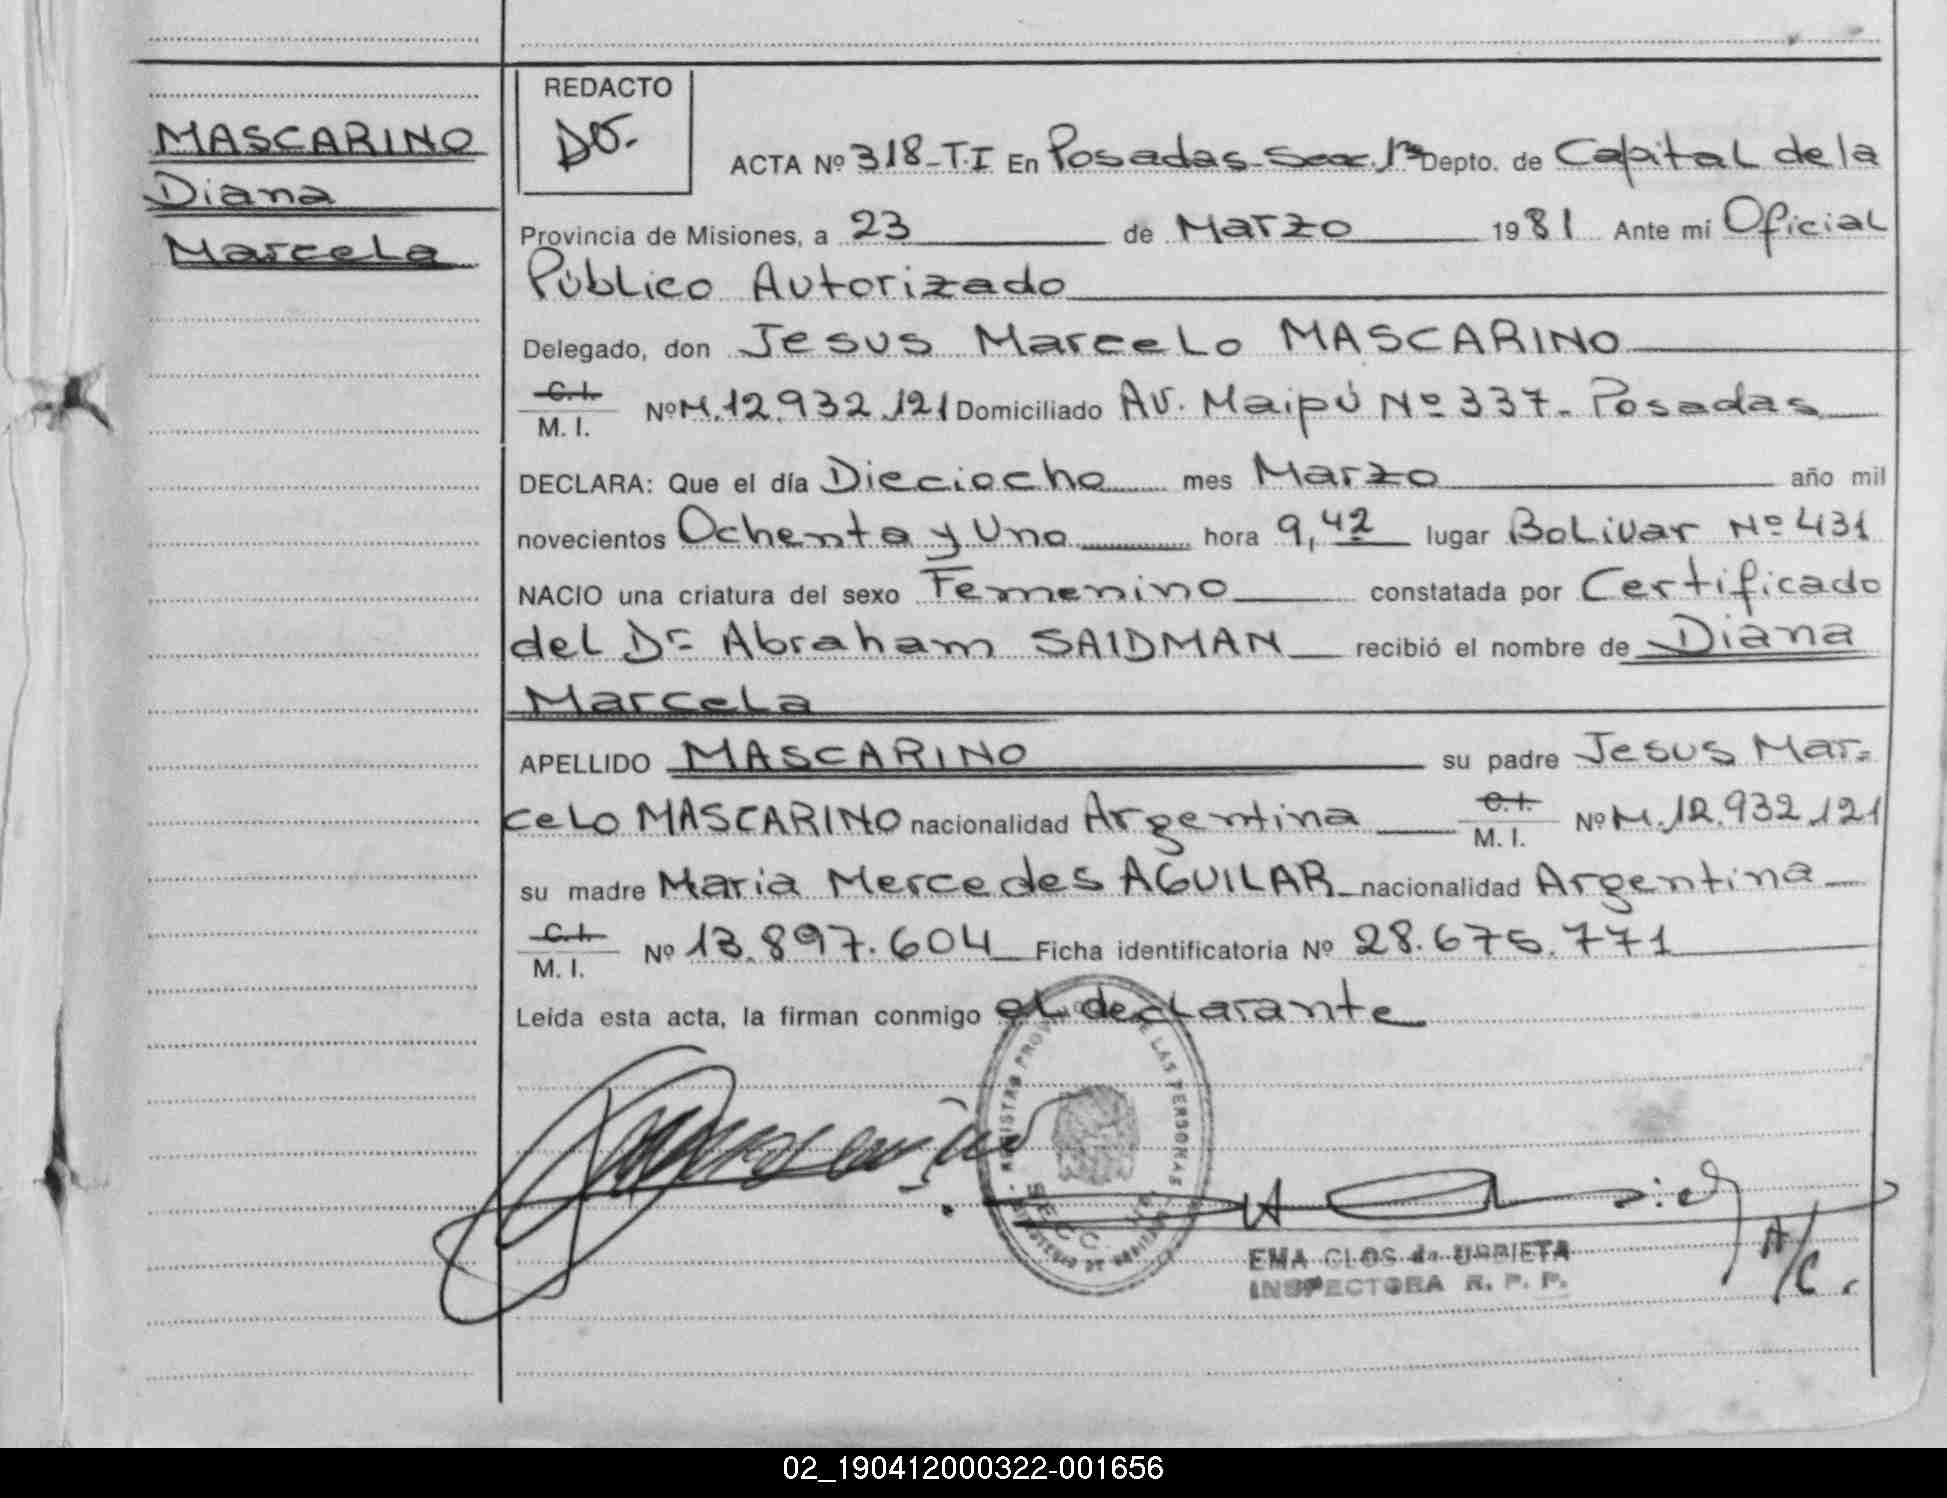 MASCARINO
Diana
Marcela
REDACTO
ACTA Nº 318-T.I En Posadas-Secc.1ª Depto. de Capital de la
Provincia de Misiones, a 23 de Marzo 1981 Ante mí Oficial
Público Autorizado
Delegado, don Jesus Marcelo MASCARINO
C.I.
M. I. Nº M.12.932.121 Domiciliado Av. Maipú Nº 337-Posadas
DECLARA: Que el día Dieciocho mes Marzo año mil
novecientos Ochenta y Uno hora 9,42 lugar Bolivar Nº 431
NACIO una criatura del sexo Femenino constatada por Certificado
del Dr Abraham SAIDMAN recibió el nombre de Diana
Marcela
APELLIDO MASCARINO su padre Jesus Mar=
celo MASCARINO nacionalidad Argentina C.I.
M. I. Nº M.12.932.121
su madre Maria Mercedes AGUILAR nacionalidad Argentina
C.I.
M. I. Nº 13.897.604 Ficha identificatoria Nº 28.675.771
Leída esta acta, la firman conmigo el declarante
REGISTRO PROVINCIAL DE LAS PERSONAS
SECC.
EMA CLOS de URRIETA
INSPECTORA R. P. P.
A/C.
02_190412000322-001656